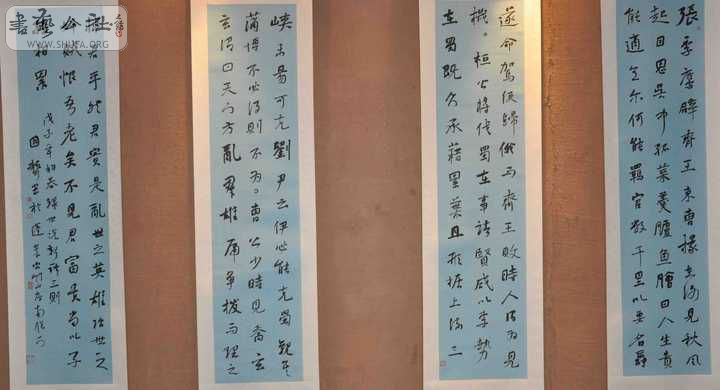 張季鷹辟齊王東曹掾在洛見秋風
起因思吳中菰菜羹鱸魚膾曰人生貴
能適意尔何能羈宦数千里以要名爵
遂命駕便歸俄而齊王敗時人皆為見
機。桓公將伐蜀在事諸賢咸以李勢
在蜀既久承藉累葉且形據上流三
峽未易可克劉尹云伊必能克蜀觀其
蒲博不必得則不為。曹公少時見喬玄
玄謂曰天下方亂羣雄虎爭撥而理之
君乎然君實是亂世之英雄治世之
賊恨吾老矣不見君富貴當以子
相累
戊子年初春録世說新語三則
WWW.SHUFA.ORG